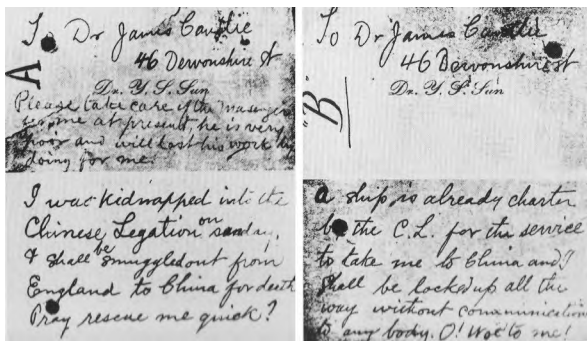 To Dr James Cantlie
46 Devonshire St
A
Dr. Y. S. Sun
Please take care of the messenger
for me at present, he is very
poor and will lost his work by
doing for me!
I was kidnapped into the
Chinese Legation on sunday
& shall be smuggled out from
England to China for death
Pray rescue me quick?
To Dr James Cantlie
46 Devonshire St
Dr. Y. S. Sun
B
a ship is already charter
by the C. L. for the service
to take me to China and I
shall be locked up all the
way without communication
to any body. O! Woe to me!